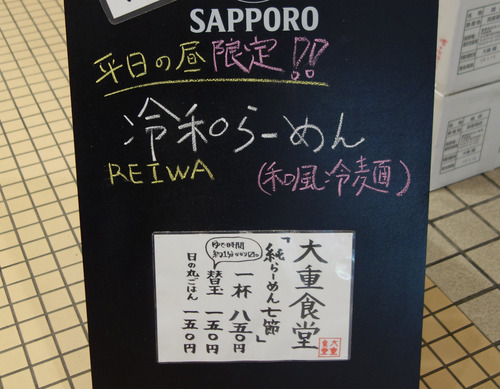 SAPPORO
平日の昼 限定!!
冷和らーめん
REIWA
(和風冷麺)
大重食堂
「純らーめん七節」
一杯 八五〇円
替玉 一五〇円
日の丸ごはん 一五〇円
大重食堂